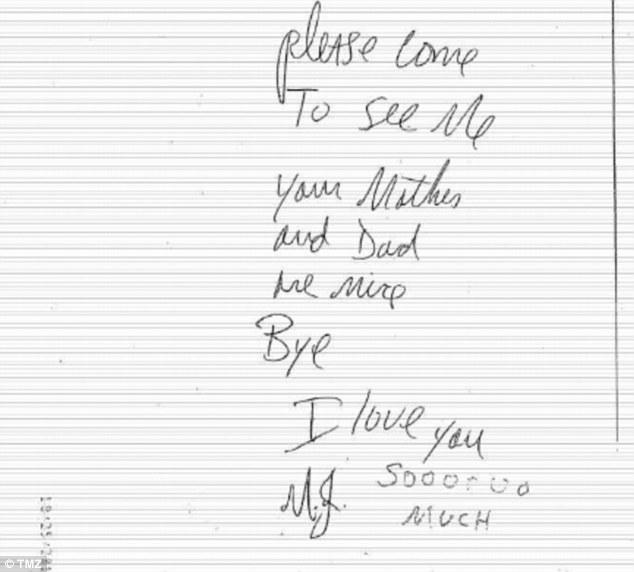 please come
To see Me
your Mother
and Dad
are nice
Bye
I love you
M.J. Soooooo
MUCH
© TMZ